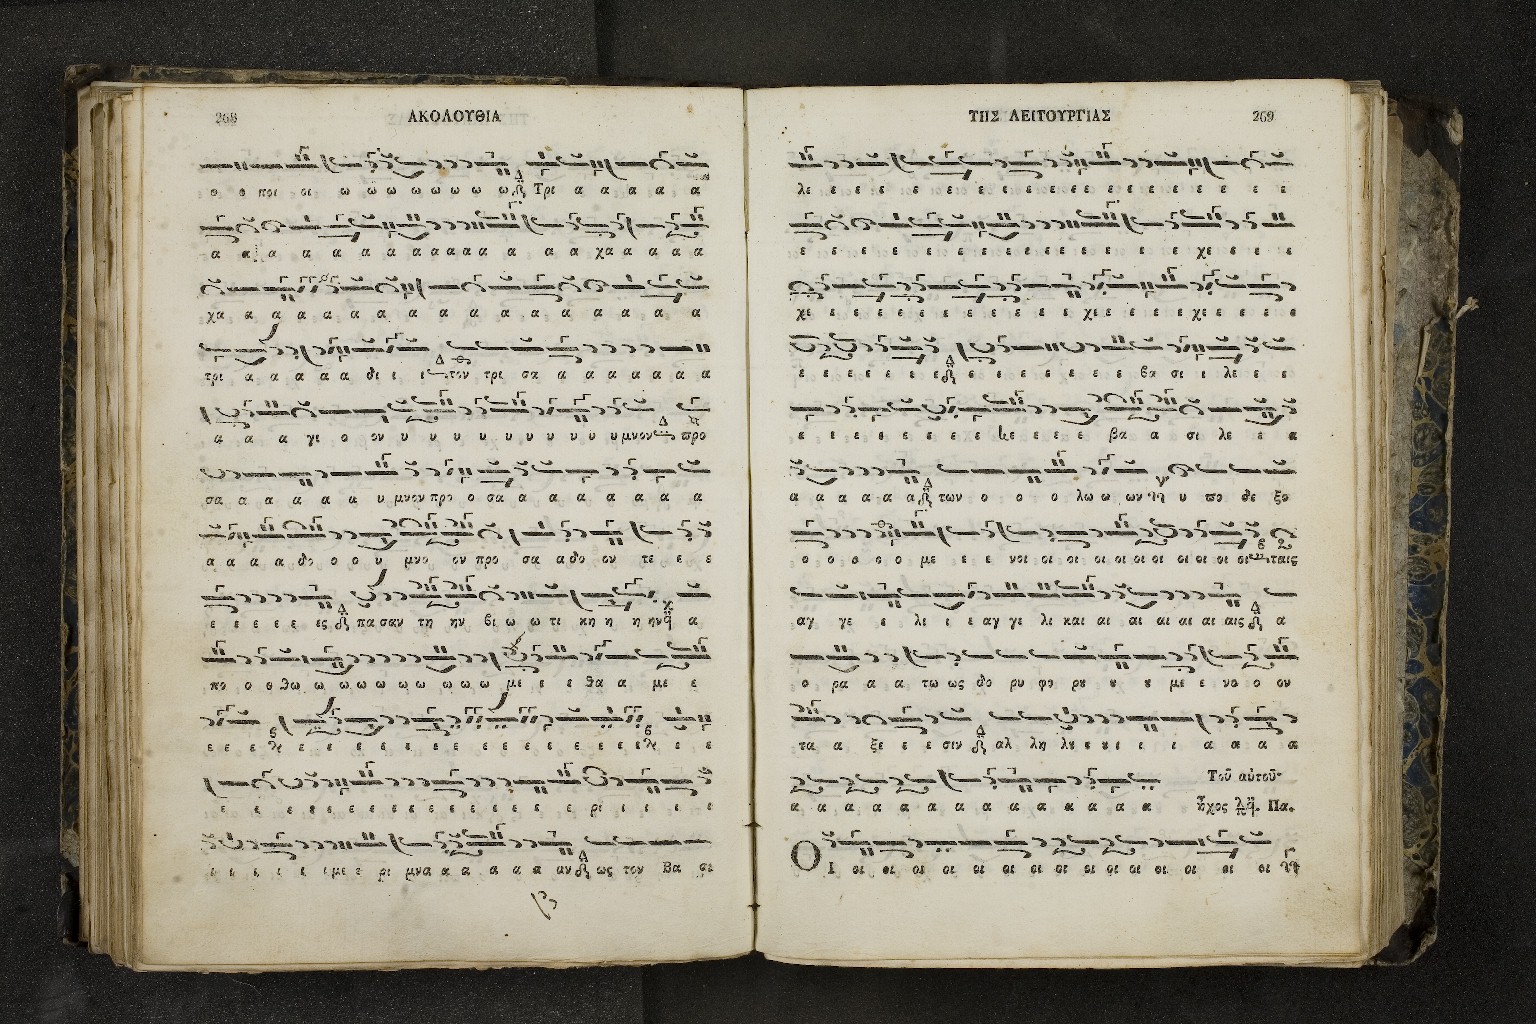 268
ΑΚΟΛΟΥΘΙΑ
ο ο ποι οι ω ω ω ω ω ω ω ω Τρι α α α α α
α α α α α α α α α α α α α α α χα α α α α
χα α α α α α α α α α α α α α α α α α
τρι α α α α α δι ι ι τον τρι σα α α α α α α α
α α α γι ο ον υ υ υ υ υ υ υ υ υ υ μνον προ
σα α α α α α υ μνον προ ο σα α α α α α α α α
α α α α δο ο ο υ μνο ον προ σα α δο ον τε ε ε
ε ε ε ε ε ες πα σαν τη ην βι ω ω τι κη η η ην α
πο ο ο θω ω ω ω ω ω ω ω ω με ε ε ε θα α με ε
ε ε ε ε ε ε ε ε ε ε ε ε ε ε ε ε ε ε ε
ε ε ε ε ε ε ε ε ε ε ε ε ε ε ρι ι ι ι ι
ι ι ι ι ι ι με ε ρι μνα α α α α α αν ως τον Βα σι
ΤΗΣ ΛΕΙΤΟΥΡΓΙΑΣ
269
λε ε ε ε ε ε ε ε ε ε ε ε ε ε ε ε ε ε ε ε ε
ε ε ε ε ε ε ε ε ε ε ε ε ε ε ε ε χε ε ε ε
χε ε ε ε ε ε ε ε ε ε ε ε χε ε ε ε χε ε ε ε ε
ε ε ε ε ε ε ε ε ε ε ε ε ε ε βα σι ι λε ε ε
ε ε ε ε ε ε ε ε ε ε ε ε βα α σι λε ε α
α α α α α α α των ο ο ο λω ω ων υ πο δε ξο
ο ο ο ο ο με ε ε νοι οι οι οι οι οι οι οι οι οι οι ταις
αγ γε ε λι ι ε αγ γε λι και αι αι αι αι αι αι αις α
ο ρα α α τω ως δο ρυ φο ρυ υ υ υ με ε νο ο ον
τα α ξε ε ε σιν αλ λη λυ υ υ ι ι α α α α
α α α α α α α α α α α α α α
Τοῦ αὐτοῦ·
ἦχος Πα.
ΟΙ οι οι οι οι οι οι οι οι οι οι οι οι οι οι οι οι